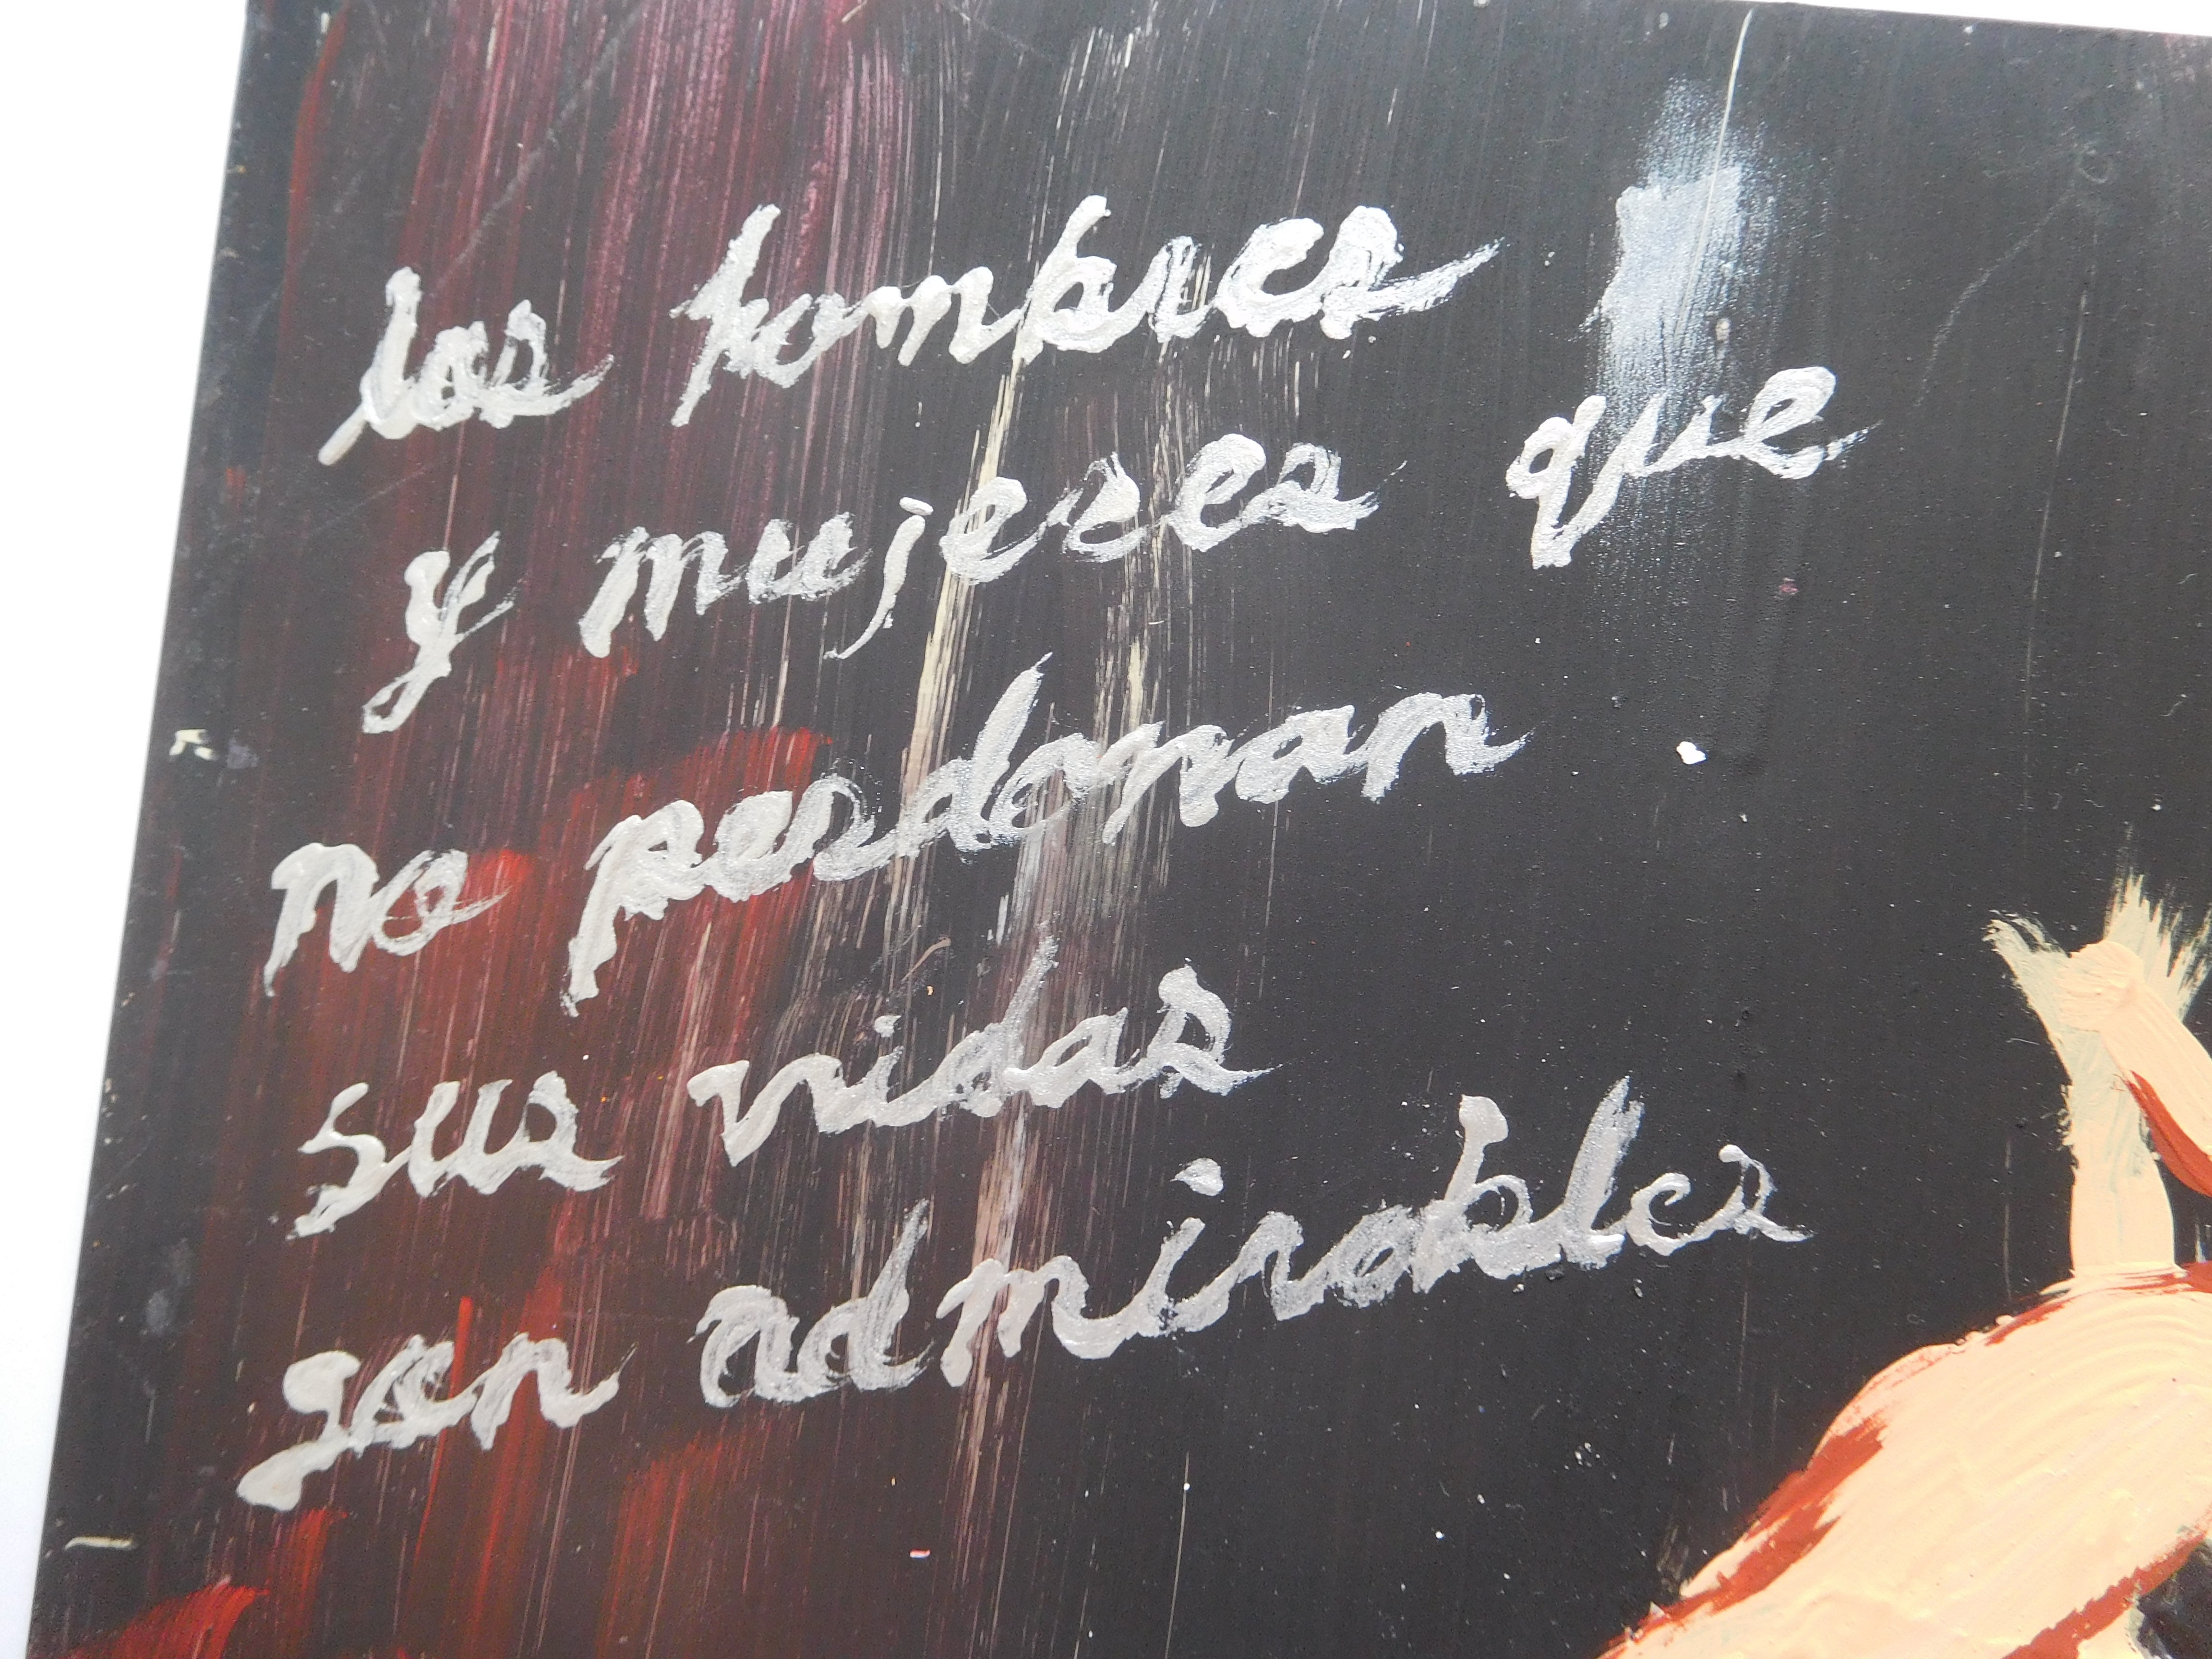 los hombres
y mujeres que
no perdonan
sus vidas
son admirables